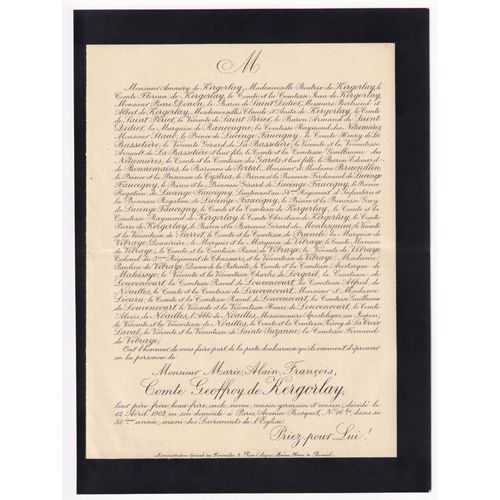 M
Monsieur Amaury de Kergorlay, Mademoiselle Béatrix de Kergorlay, le
Comte Florian de Kergorlay, le Comte et la Comtesse Jean de Kergorlay,
Monsieur Pierre Donon, le Baron de Saint Didier, Messieurs Bertrand et
Albert de Kergorlay, Mesdemoiselles Claude et Anita de Kergorlay, le Comte
de Saint Périer, le Vicomte de Saint Périer, le Baron Armand de Saint
Didier, la Marquise de Rancougne, la Comtesse Raymond des Nétumières
Monsieur Staub, le Prince de Lucinge Faucigny, le Comte Henry de La
Bassetière, le Vicomte Gérard de La Bassetière, le Vicomte et la Vicomtesse
Arnault de La Bassetière et leur fille, le Comte et la Comtesse Guillaume des
Nétumières, le Comte et la Comtesse des Garets et leur fille, le Baron Edouard
de Bonnemains, la Baronne de Portal, Monsieur et Madame
le Prince et la Princesse de Cystria, le Prince et la Princesse Ferdinand de Lucinge
Faucigny, le Prince et la Princesse Gérard de Lucinge Faucigny, le Prince
Rogatien de Lucinge Faucigny, Lieutenant au Régiment d'Infanterie et
la Princesse Rogatien de Lucinge Faucigny, le Prince et la Princesse Guy
de Lucinge Faucigny, le Comte et la Comtesse de Kergorlay, le Comte et la
Comtesse Raymond de Kergorlay, le Comte Christian de Kergorlay, le Comte
Pierre de Kergorlay, le Baron et la Baronne Gérard de Montesquiou, le Vicomte
et la Vicomtesse de Sarret, le Comte et la Comtesse de Prunelé, la Marquise de
Vibraye Douairière, le Marquis et la Marquise de Vibraye, le Comte Maxence
de Vibraye, le Comte et la Comtesse René de Vibraye, le Vicomte de Vibraye
Colonel du Régiment de Chasseurs, et la Vicomtesse de Vibraye, Madame
Pauline de Vibraye Dame de la Retraite, le Comte et la Comtesse Audéric de
Maleissye, le Vicomte et la Vicomtesse Charles de Lorgeril, la Comtesse de
Louvencourt, la Comtesse Raoul de Louvencourt, la Comtesse Alfred de
Noailles, le Comte et la Comtesse de Louvencourt, Monsieur et Madame
le Comte et la Comtesse Raoul de Louvencourt, la Comtesse Guillaume
de Louvencourt, le Vicomte et la Vicomtesse Pierre de Louvencourt, le Comte
Alexis de Noailles, l'Abbé de Noailles, Missionnaire Apostolique, au Japon,
le Vicomte et la Vicomtesse de Noailles, le Comte et la Comtesse de La Croix
Laval, le Vicomte et la Vicomtesse de Sainte Suzanne, la Comtesse Fernand
de Vibraye,
Ont l'honneur de vous faire part de la perte douloureuse qu'ils viennent d'éprouver
en la personne de
Monsieur Marie, Alain, François,
Comte Geoffroy de Kergorlay,
leur père, frère, beau-frère, oncle, neveu, cousin-germain et cousin, décédé le
12 Avril 1903, en son domicile à Paris, Avenue Bosquet, N° dans sa
50ème année, muni des Sacrements de l'Église.
Priez pour Lui!
Administration Spéciale des Funérailles, 2, Rue d'Anjou,